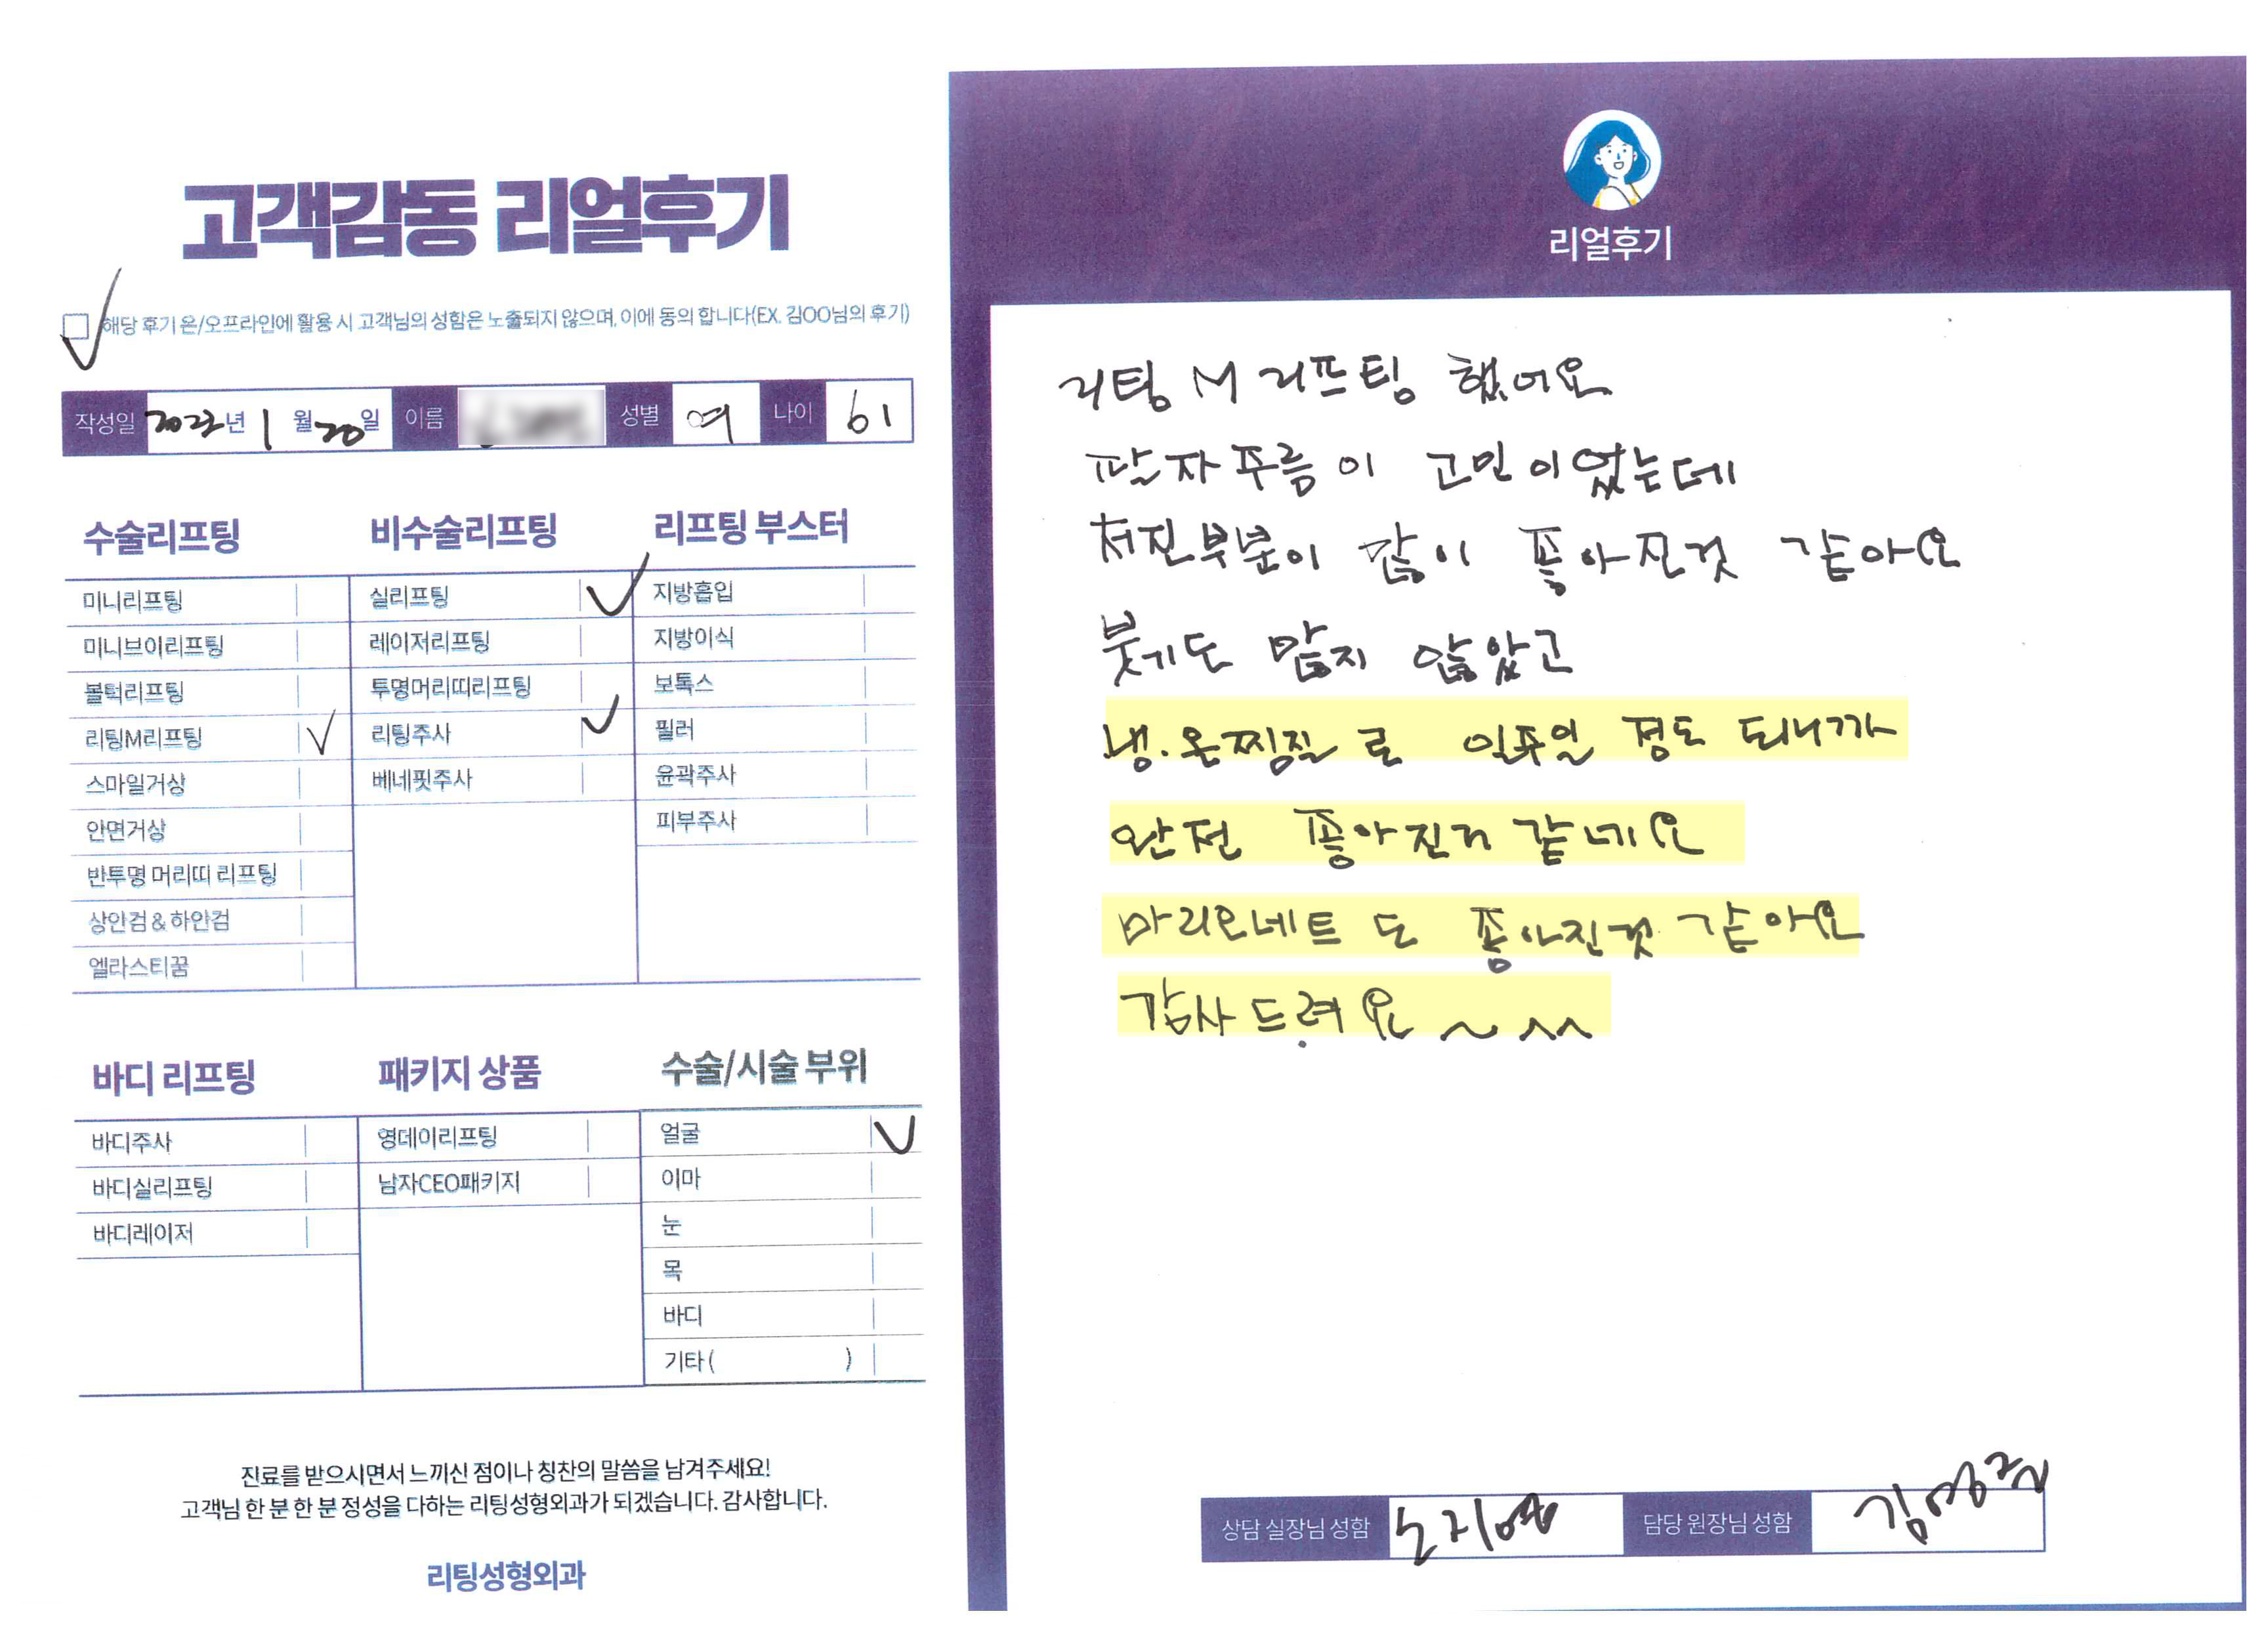 고객감동 리얼후기
해당 후기 온/오프라인에 활용 시 고객님의 성함은 노출되지 않으며, 이에 동의 합니다(EX. 김OO님의 후기)
작성일 2023년 1월 20일 이름 성별 여 나이 61
수술리프팅
미니리프팅
미니브이리프팅
볼턱리프팅
리팅M리프팅
스마일거상
안면거상
반투명 머리띠 리프팅
상안검 & 하안검
엘라스티꿈
비수술리프팅
실리프팅
레이저리프팅
투명머리띠리프팅
리팅주사
베네핏주사
리프팅 부스터
지방흡입
지방이식
보톡스
필러
윤곽주사
피부주사
바디 리프팅
바디주사
바디실리프팅
바디레이저
패키지 상품
영데이리프팅
남자CEO패키지
수술/시술 부위
얼굴
이마
눈
목
바디
기타 ( )
진료를 받으시면서 느끼신 점이나 칭찬의 말씀을 남겨주세요!
고객님 한 분 한 분 정성을 다하는 리팅성형외과가 되겠습니다. 감사합니다.
리팅성형외과
리얼후기
리팅 M 리프팅 했어요
팔자주름이 고민이었는데
처진부분이 많이 좋아진것 같아요
붓기도 많지 않았고
냉.온찜질로 일주일 정도 되니까
완전 좋아진거 같네요
마리오네트도 좋아진것 같아요
감사드려요 ~ ^^
상담 실장님 성함 담당 원장님 성함